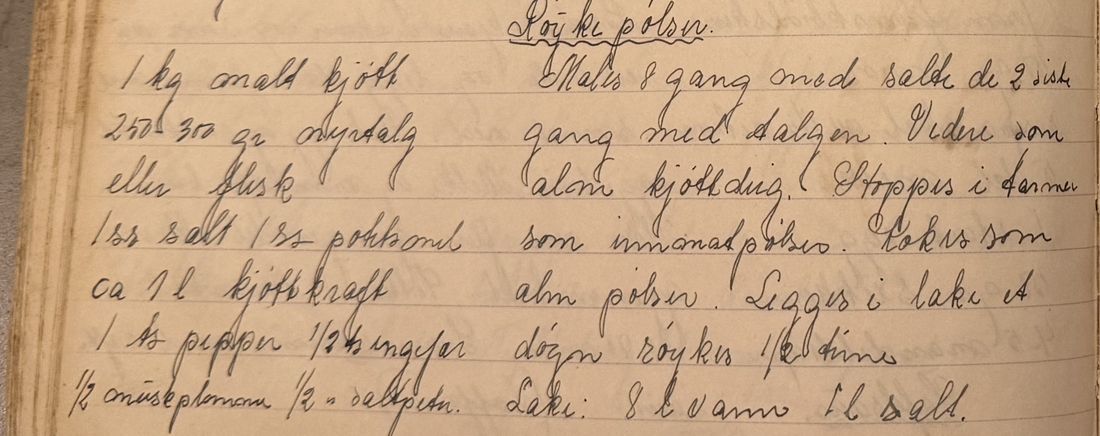 Röyke pölser.
1 kg malt kjött
250-300 gr nyrtalg
eller flesk
1 ss salt 1 ss potetmel
ca 1 l kjöttkraft
1 ts pepper 1/2 ts ingefær
1/2 " saltpeter.
Males 8 gang med salte de 2 siste
gang med talgen. Videre som
alm kjöttdeig. Stoppes i tarmer
som innmatpölser. Kokes som
alm pölser. Legges i lake et
dögn röykes 1/2 time
Lake: 8 l vann 1 l salt.